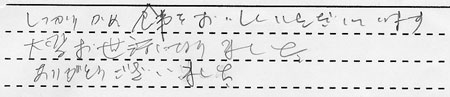 しっかりかめ食事をおいしくいただいています
大変お世話になりました
ありがとうございました